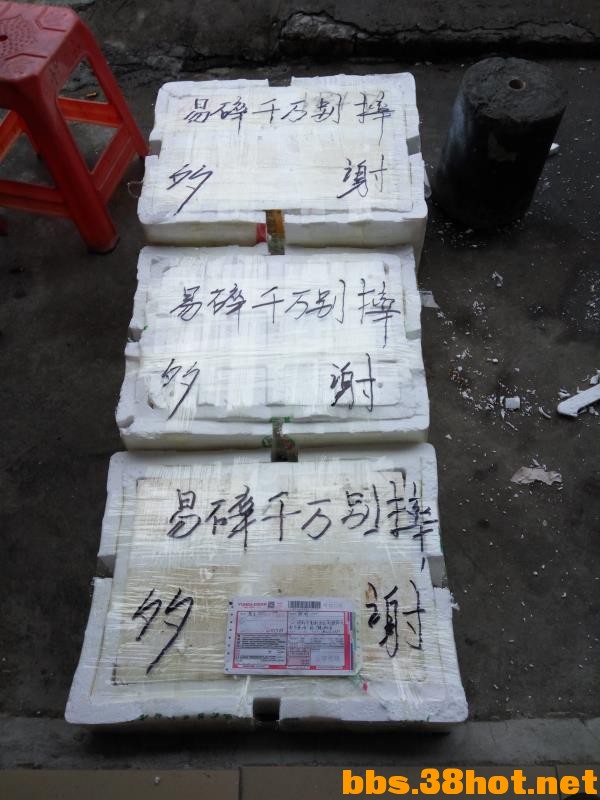 易碎千万别摔
多谢
易碎千万别摔
多谢
易碎千万别摔
多谢
bbs.38hot.net